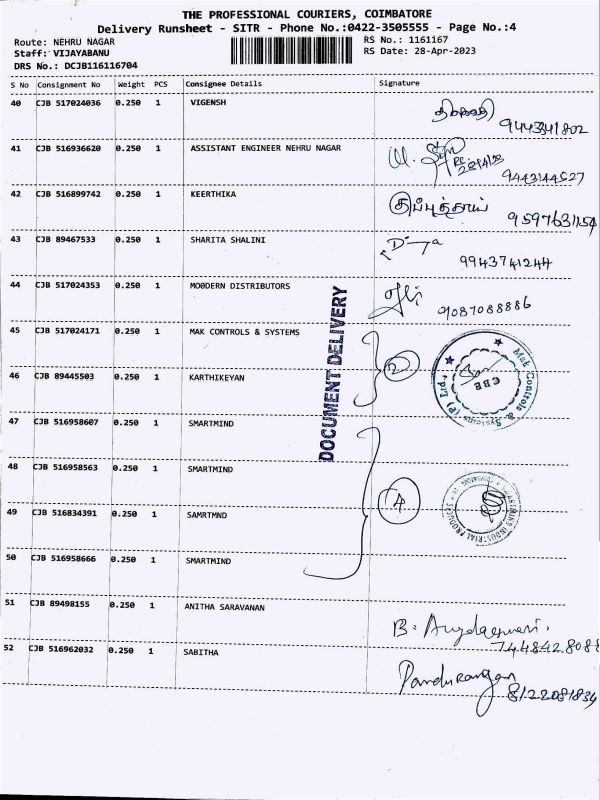 THE PROFESSIONAL COURIERS, COIMBATORE
Delivery Runsheet - SITR - Phone No.:0422-3505555 - Page No.:4
Route: NEHRU NAGAR RS No.: 1161167
Staff: VIJAYABANU RS Date: 28-Apr-2023
DRS No.: DCJB116116704
S No Consignment No Weight PCS Consignee Details Signature
40 CJB 517024036 0.250 1 VIGENSH
9443341802
41 CJB 516936620 0.250 1 ASSISTANT ENGINEER NEHRU NAGAR
9443144527
42 CJB 516899742 0.250 1 KEERTHIKA குப்புத்தாய்
9597631154
43 CJB 89467533 0.250 1 SHARITA SHALINI
9943741244
44 CJB 517024353 0.250 1 MOODERN DISTRIBUTORS
9087088886
DOCUMENT DELIVERY
45 CJB 517024171 0.250 1 MAK CONTROLS & SYSTEMS
2
Mak Controls & Systems (P) Ltd.
CBE
46 CJB 89445503 0.250 1 KARTHIKEYAN
47 CJB 516958607 0.250 1 SMARTMIND
48 CJB 516958563 0.250 1 SMARTMIND
4
49 CJB 516834391 0.250 1 SAMRTMND
50 CJB 516958666 0.250 1 SMARTMIND
51 CJB 89498155 0.250 1 ANITHA SARAVANAN
B.
7448428088
52 CJB 516962032 0.250 1 SABITHA
Pandurangan
8122081834